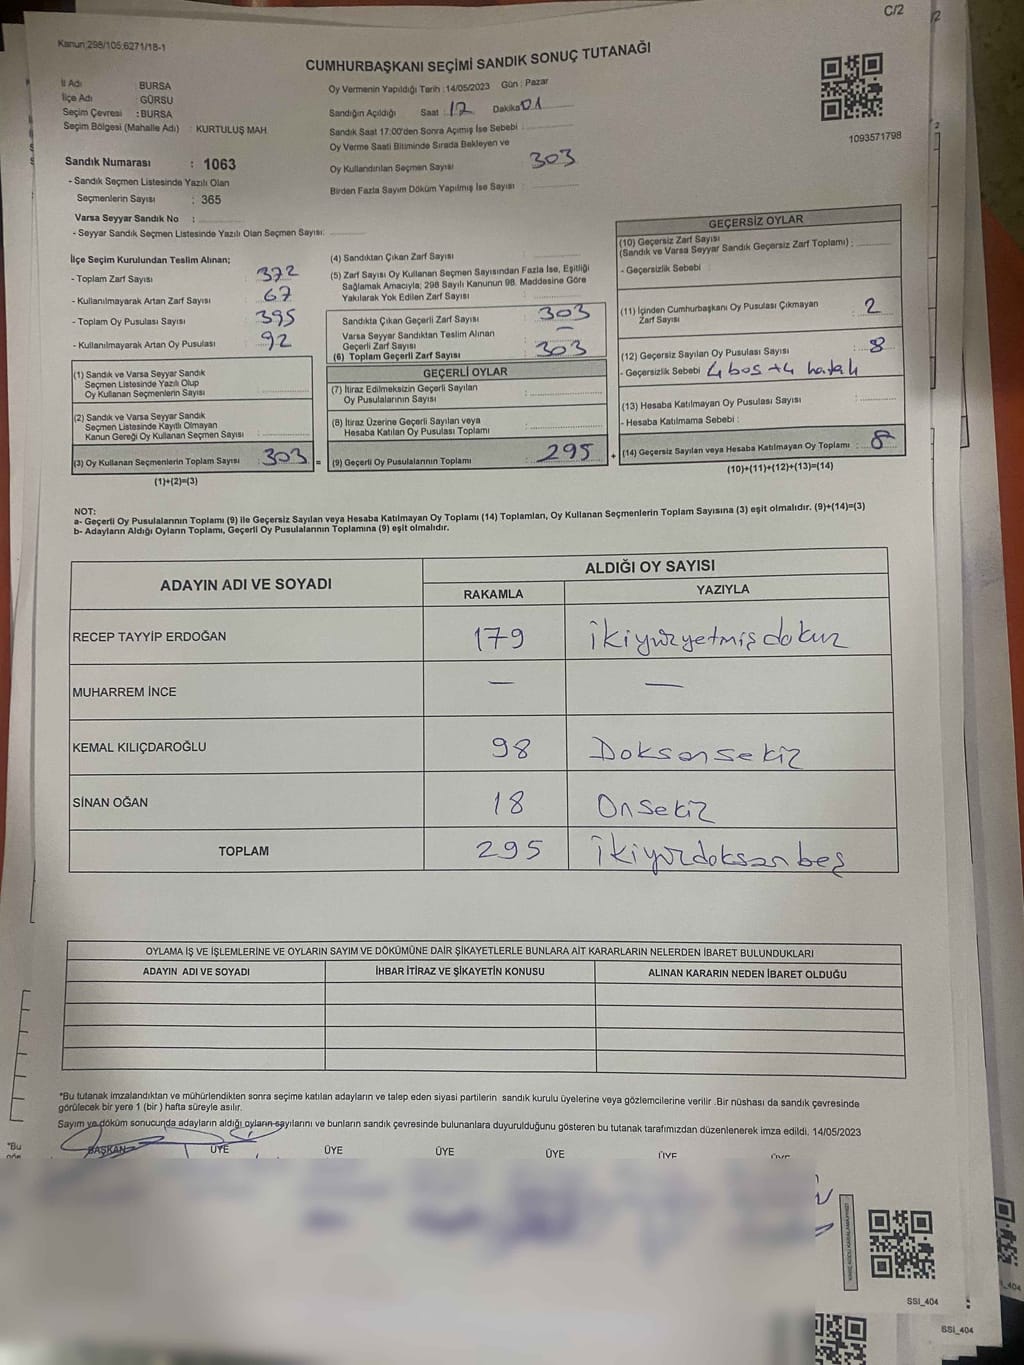 C/2
Kanun;298/105;6271/18-1
CUMHURBAŞKANI SEÇİMİ SANDIK SONUÇ TUTANAĞI
İl Adı : BURSA
İlçe Adı : GÜRSU
Seçim Çevresi : BURSA
Seçim Bölgesi (Mahalle Adı) : KURTULUŞ MAH
Sandık Numarası : 1063
- Sandık Seçmen Listesinde Yazılı Olan
Seçmenlerin Sayısı : 365
Varsa Seyyar Sandık No :
- Seyyar Sandık Seçmen Listesinde Yazılı Olan Seçmen Sayısı:
Oy Vermenin Yapıldığı Tarih :14/05/2023 Gün : Pazar
Sandığın Açıldığı Saat : 17 Dakika 01
Sandık Saat 17:00'den Sonra Açımış İse Sebebi :
Oy Verme Saati Bitiminde Sırada Bekleyen ve
Oy Kullandırılan Seçmen Sayısı : 303
Birden Fazla Sayım Döküm Yapılmış İse Sayısı :
1093571798
İlçe Seçim Kurulundan Teslim Alınan;
- Toplam Zarf Sayısı : 372
- Kullanılmayarak Artan Zarf Sayısı : 67
- Toplam Oy Pusulası Sayısı : 395
- Kullanılmayarak Artan Oy Pusulası : 92
(1) Sandık ve Varsa Seyyar Sandık
Seçmen Listesinde Yazılı Olup
Oy Kullanan Seçmenlerin Sayısı :
(2) Sandık ve Varsa Seyyar Sandık
Seçmen Listesinde Kayıtlı Olmayan
Kanun Gereği Oy Kullanan Seçmen Sayısı :
(3) Oy Kullanan Seçmenlerin Toplam Sayısı : 303 =
(1)+(2)=(3)
(4) Sandıktan Çıkan Zarf Sayısı :
(5) Zarf Sayısı Oy Kullanan Seçmen Sayısından Fazla İse, Eşitliği
Sağlamak Amacıyla; 298 Sayılı Kanunun 98. Maddesine Göre
Yakılarak Yok Edilen Zarf Sayısı :
Sandıkta Çıkan Geçerli Zarf Sayısı : 303
Varsa Seyyar Sandıktan Teslim Alınan
Geçerli Zarf Sayısı : —
(6) Toplam Geçerli Zarf Sayısı : 303
GEÇERLİ OYLAR
(7) İtiraz Edilmeksizin Geçerli Sayılan
Oy Pusulalarının Sayısı :
(8) İtiraz Üzerine Geçerli Sayılan veya
Hesaba Katılan Oy Pusulası Toplamı :
(9) Geçerli Oy Pusulalarının Toplamı : 295 +
GEÇERSİZ OYLAR
(10) Geçersiz Zarf Sayısı
(Sandık ve Varsa Seyyar Sandık Geçersiz Zarf Toplamı) :
- Geçersizlik Sebebi :
(11) İçinden Cumhurbaşkanı Oy Pusulası Çıkmayan
Zarf Sayısı : 2
(12) Geçersiz Sayılan Oy Pusulası Sayısı : 8
- Geçersizlik Sebebi : 4 boş +4 hatalı
(13) Hesaba Katılmayan Oy Pusulası Sayısı :
- Hesaba Katılmama Sebebi :
(14) Geçersiz Sayılan veya Hesaba Katılmayan Oy Toplamı : 8
(10)+(11)+(12)+(13)=(14)
NOT:
a- Geçerli Oy Pusulalarının Toplamı (9) ile Geçersiz Sayılan veya Hesaba Katılmayan Oy Toplamı (14) Toplamları, Oy Kullanan Seçmenlerin Toplam Sayısına (3) eşit olmalıdır. (9)+(14)=(3)
b- Adayların Aldığı Oyların Toplamı, Geçerli Oy Pusulalarının Toplamına (9) eşit olmalıdır.
ADAYIN ADI VE SOYADI ALDIĞI OY SAYISI
RAKAMLA YAZIYLA
RECEP TAYYİP ERDOĞAN 179 ikiyüzyetmişdokuz
MUHARREM İNCE — —
KEMAL KILIÇDAROĞLU 98 Doksansekiz
SİNAN OĞAN 18 Onsekiz
TOPLAM 295 ikiyüzdoksanbeş
OYLAMA İŞ VE İŞLEMLERİNE VE OYLARIN SAYIM VE DÖKÜMÜNE DAİR ŞİKAYETLERLE BUNLARA AİT KARARLARIN NELERDEN İBARET BULUNDUKLARI
ADAYIN ADI VE SOYADI İHBAR İTİRAZ VE ŞİKAYETİN KONUSU ALINAN KARARIN NEDEN İBARET OLDUĞU
*Bu tutanak imzalandıktan ve mühürlendikten sonra seçime katılan adayların ve talep eden siyasi partilerin sandık kurulu üyelerine veya gözlemcilerine verilir .Bir nüshası da sandık çevresinde
görülecek bir yere 1 (bir ) hafta süreyle asılır.
Sayım ve döküm sonucunda adayların aldığı oyların sayılarını ve bunların sandık çevresinde bulunanlara duyurulduğunu gösteren bu tutanak tarafımızdan düzenlenerek imza edildi. 14/05/2023
BAŞKAN ÜYE ÜYE ÜYE ÜYE ÜYE ÜYE
*Bu
SSI_404
SSI_404